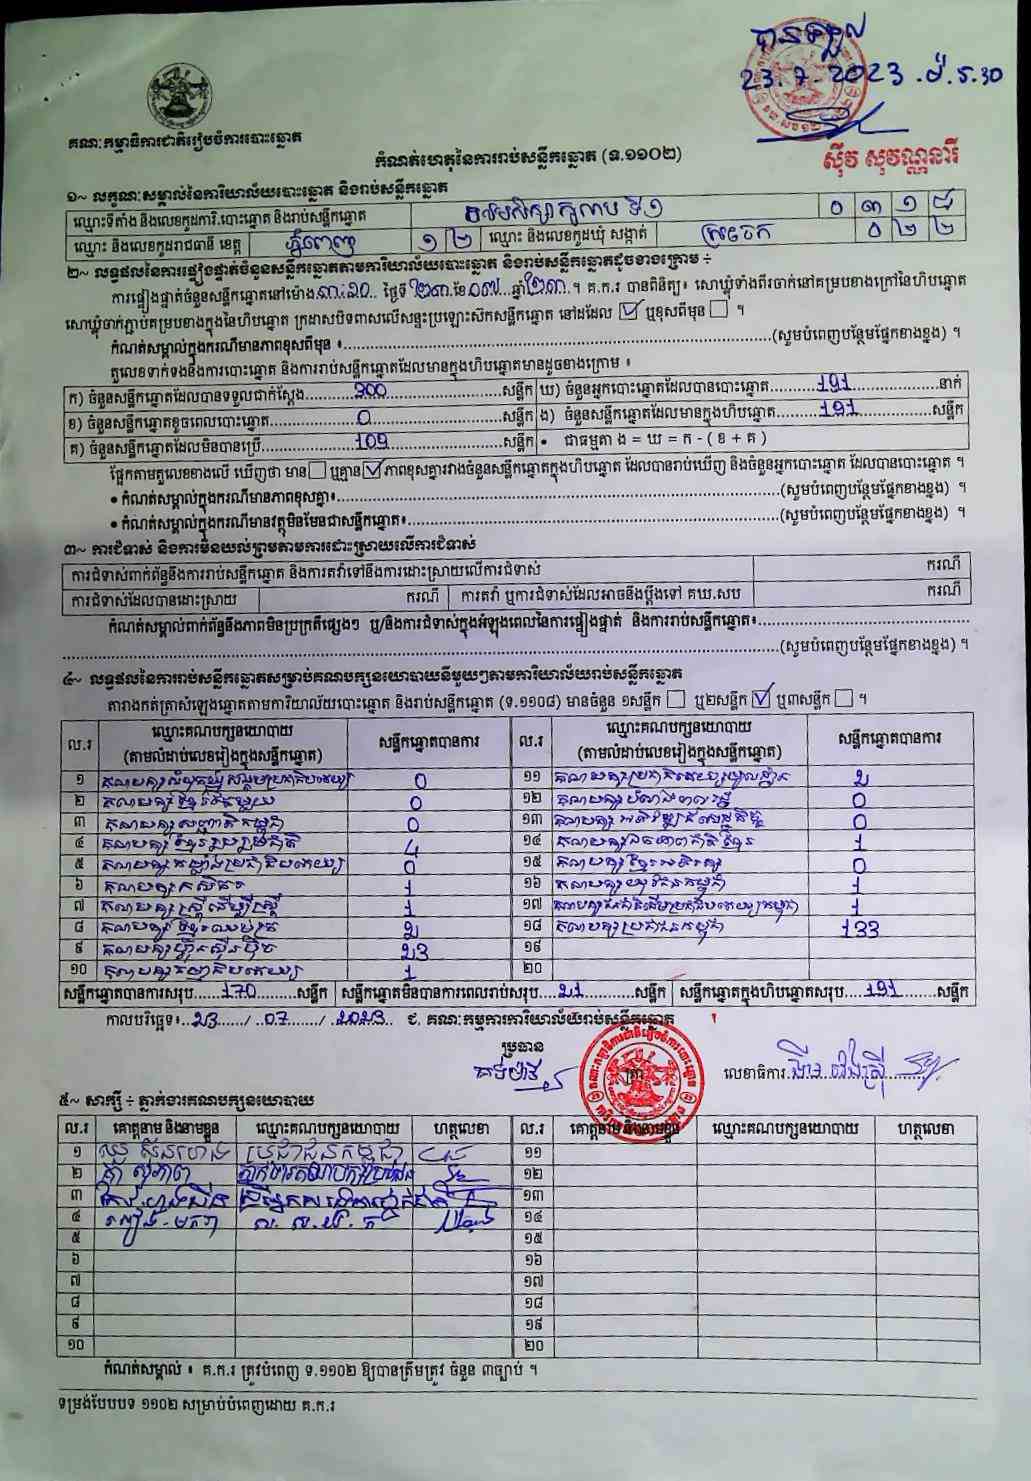 បានទទួល
23.7.2023.ម៉.5.30
គណៈកម្មាធិការជាតិរៀបចំការបោះឆ្នោត
កំណត់ហេតុនៃការរាប់សន្លឹកឆ្នោត (ទ.១១០២)
ស៊ីវ សុវណ្ណនារី
១~ លក្ខណៈសម្គាល់នៃការិយាល័យបោះឆ្នោត និងរាប់សន្លឹកឆ្នោត
ឈ្មោះទីតាំង និងលេខកូដការិ.បោះឆ្នោត និងរាប់សន្លឹកឆ្នោត ០ ៣ ១ ៨
ឈ្មោះ និងលេខកូដរាជធានី ខេត្ត ភ្នំពេញ ១ ២ ឈ្មោះ និងលេខកូដឃុំ សង្កាត់ ស្រះចក ០ ២ ២
២~ លទ្ធផលនៃការផ្ទៀងផ្ទាត់ចំនួនសន្លឹកឆ្នោតតាមការិយាល័យបោះឆ្នោត និងរាប់សន្លឹកឆ្នោតដូចខាងក្រោម ÷
ការផ្ទៀងផ្ទាត់ចំនួនសន្លឹកឆ្នោតនៅម៉ោង ៣:20 ថ្ងៃទី ២៣ ខែ ០៧ ឆ្នាំ ២៣ ។ គ.ក.រ បានពិនិត្យ៖ សោឃ្លុំទាំងពីរចាក់នៅគម្របខាងក្រៅនៃហិបឆ្នោត
សោឃ្លុំចាក់ភ្ជាប់គម្របខាងក្នុងនៃហិបឆ្នោត ក្រដាសបិទពាសលើសន្ទះប្រឡោះស៊កសន្លឹកឆ្នោត នៅដដែល ☑ ឬខុសពីមុន ☐ ។
កំណត់សម្គាល់ក្នុងករណីមានភាពខុសពីមុន ៖ (សូមបំពេញបន្ថែមផ្នែកខាងខ្នង) ។
តួលេខទាក់ទងនឹងការបោះឆ្នោត និងការរាប់សន្លឹកឆ្នោតដែលមានក្នុងហិបឆ្នោតមានដូចខាងក្រោម ៖
ក) ចំនួនសន្លឹកឆ្នោតដែលបានទទួលជាក់ស្តែង 300 សន្លឹក ឃ) ចំនួនអ្នកបោះឆ្នោតដែលបានបោះឆ្នោត 191 នាក់
ខ) ចំនួនសន្លឹកឆ្នោតខូចពេលបោះឆ្នោត 0 សន្លឹក ង) ចំនួនសន្លឹកឆ្នោតដែលមានក្នុងហិបឆ្នោត 191 សន្លឹក
គ) ចំនួនសន្លឹកឆ្នោតដែលមិនបានប្រើ 109 សន្លឹក • ជាធម្មតា ង = ឃ = ក - ( ខ + គ )
ផ្អែកតាមតួលេខខាងលើ ឃើញថា មាន ☐ ឬគ្មាន ☑ ភាពខុសគ្នារវាងចំនួនសន្លឹកឆ្នោតក្នុងហិបឆ្នោត ដែលបានរាប់ឃើញ និងចំនួនអ្នកបោះឆ្នោត ដែលបានបោះឆ្នោត ។
• កំណត់សម្គាល់ក្នុងករណីមានភាពខុសគ្នា៖ (សូមបំពេញបន្ថែមផ្នែកខាងខ្នង) ។
• កំណត់សម្គាល់ក្នុងករណីមានវត្ថុមិនមែនជាសន្លឹកឆ្នោត៖ (សូមបំពេញបន្ថែមផ្នែកខាងខ្នង) ។
៣~ ការជំទាស់ និងការមិនយល់ព្រមតាមការដោះស្រាយលើការជំទាស់
ការជំទាស់ពាក់ព័ន្ធនឹងការរាប់សន្លឹកឆ្នោត និងការតវ៉ាទៅនឹងការដោះស្រាយលើការជំទាស់ ករណី
ការជំទាស់ដែលបានដោះស្រាយ ករណី ការតវ៉ា ឬការជំទាស់ដែលអាចនឹងប្តឹងទៅ គឃ.សប ករណី
កំណត់សម្គាល់ពាក់ព័ន្ធនឹងភាពមិនប្រក្រតីផ្សេងៗ ឬ/និងការជំទាស់ក្នុងអំឡុងពេលនៃការផ្ទៀងផ្ទាត់ និងការរាប់សន្លឹកឆ្នោត៖
(សូមបំពេញបន្ថែមផ្នែកខាងខ្នង) ។
៤~ លទ្ធផលនៃការរាប់សន្លឹកឆ្នោតសម្រាប់គណបក្សនយោបាយនីមួយៗតាមការិយាល័យរាប់សន្លឹកឆ្នោត
តារាងកត់ត្រាសំឡេងឆ្នោតតាមការិយាល័យបោះឆ្នោត និងរាប់សន្លឹកឆ្នោត (ទ.១១០៨) មានចំនួន ១សន្លឹក ☐ ឬ២សន្លឹក ☑ ឬ៣សន្លឹក ☐ ។
ល.រ ឈ្មោះគណបក្សនយោបាយ (តាមលំដាប់លេខរៀងក្នុងសន្លឹកឆ្នោត) សន្លឹកឆ្នោតបានការ ល.រ ឈ្មោះគណបក្សនយោបាយ (តាមលំដាប់លេខរៀងក្នុងសន្លឹកឆ្នោត) សន្លឹកឆ្នោតបានការ
១ គណបក្សសំបុកឃ្មុំសង្គមប្រជាធិបតេយ្យ 0 ១១ គណបក្សប្រជាធិបតេយ្យមូលដ្ឋាន 2
២ គណបក្សខ្មែរឯកភាព 0 ១២ 0
៣ គណបក្សសញ្ជាតិកម្ពុជា 0 ១៣ គណបក្សអភិវឌ្ឍន៍សេដ្ឋកិច្ច 0
៤ គណបក្សខ្មែររួបរួមជាតិ 4 ១៤ គណបក្សឯកភាពជាតិខ្មែរ 1
៥ គណបក្សកម្លាំងប្រជាធិបតេយ្យ 0 ១៥ គណបក្សខ្មែរអភិរក្ស 0
៦ គណបក្សកសិករ 1 ១៦ គណបក្សយុវជនកម្ពុជា 1
៧ គណបក្សស្ត្រីដើម្បីស្ត្រី 1 ១៧ គណបក្សជនជាតិដើមប្រជាធិបតេយ្យកម្ពុជា 1
៨ គណបក្សខ្មែរឈប់ក្រ 2 ១៨ គណបក្សប្រជាជនកម្ពុជា 133
៩ គណបក្សហ៊្វុនស៊ិនប៉ិច 23 ១៩
១០ គណបក្សធម្មាធិបតេយ្យ 1 ២០
សន្លឹកឆ្នោតបានការសរុប 170 សន្លឹក សន្លឹកឆ្នោតមិនបានការពេលរាប់សរុប 21 សន្លឹក សន្លឹកឆ្នោតក្នុងហិបឆ្នោតសរុប 191 សន្លឹក
កាលបរិច្ឆេទ៖ 23 / 07 / 2023 ៩. គណៈកម្មការការិយាល័យរាប់សន្លឹកឆ្នោត
ប្រធាន
ត្រា
លេខាធិការ
៥~ សាក្សី ÷ ភ្នាក់ងារគណបក្សនយោបាយ
ល.រ គោត្តនាម និងនាមខ្លួន ឈ្មោះគណបក្សនយោបាយ ហត្ថលេខា ល.រ គោត្តនាម និងនាមខ្លួន ឈ្មោះគណបក្សនយោបាយ ហត្ថលេខា
១ ប្រជាជនកម្ពុជា ១១
២ ១២
៣ ១៣
៤ ១៤
៥ ១៥
៦ ១៦
៧ ១៧
៨ ១៨
៩ ១៩
១០ ២០
កំណត់សម្គាល់ ៖ គ.ក.រ ត្រូវបំពេញ ទ.១១០២ ឱ្យបានត្រឹមត្រូវ ចំនួន ៣ច្បាប់ ។
ទម្រង់បែបបទ ១១០២ សម្រាប់បំពេញដោយ គ.ក.រ